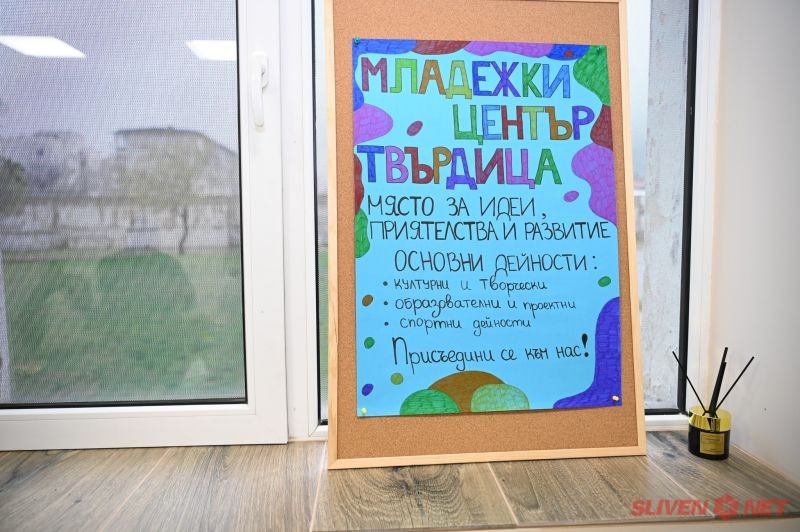 МЛАДЕЖКИ
ЦЕНТЪР
ТВЪРДИЦА
МЯСТО ЗА ИДЕИ,
ПРИЯТЕЛСТВА И РАЗВИТИЕ
ОСНОВНИ ДЕЙНОСТИ:
• КУЛТУРНИ И ТВОРЧЕСКИ
• ОБРАЗОВАТЕЛНИ И ПРОЕКТНИ
• СПОРТНИ ДЕЙНОСТИ
Присъедини се към нас!
SLIVEN NET